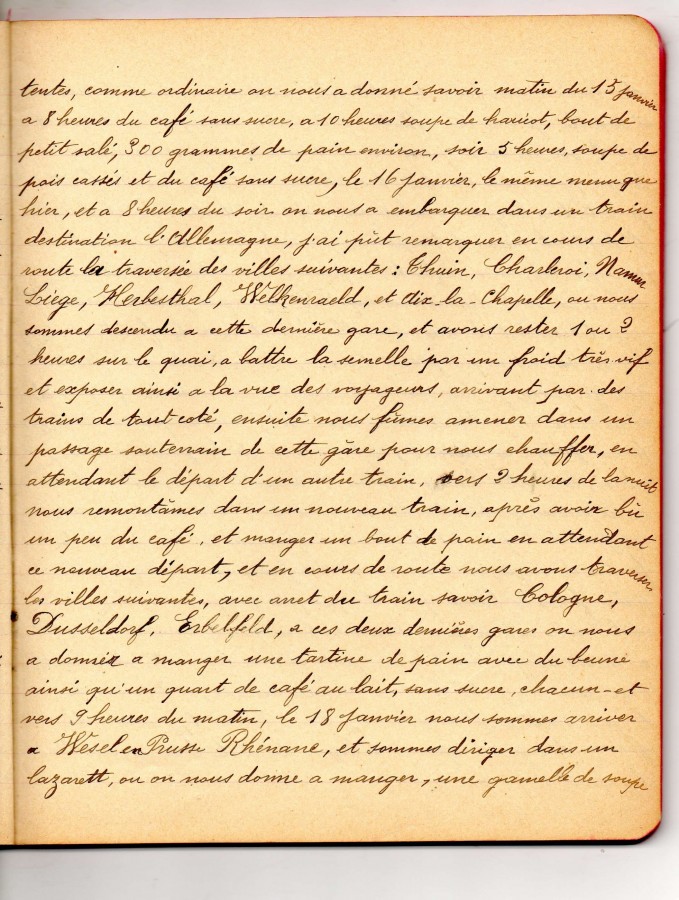 tentes, comme ordinaire on nous a donné savoir matin du 15 janvier
a 8 heures du café sans sucre, a 10 heures soupe de haricot, bout de
petit salé, 300 grammes de pain environ, soir 5 heures, soupe de
pois cassés et du café sans sucre, le 16 janvier, le même menu que
hier, et a 8 heures du soir on nous a embarquer dans un train
destination l'Allemagne, j'ai pût remarquer en cours de
route la traversée des villes suivantes : Thuin, Charleroi, Namur
Liège, Herbesthal, Welkenraeld, et Aix-la-Chapelle, ou nous
sommes descendu a cette dernière gare, et avons rester 1 ou 2
heures sur le quai, a battre la semelle par un froid très vif
et exposer ainsi a la vue des voyageurs, arrivant par des
trains de tout coté, ensuite nous fûmes amener dans un
passage souterrain de cette gâre pour nous chauffer, en
attendant le départ d'un autre train, vers 2 heures de la nuit
nous remontâmes dans un nouveau train, après avoir bû
un peu du café, et manger un bout de pain en attendant
ce nouveau départ, et en cours de route nous avons traverser
les villes suivantes, avec arret du train savoir Cologne,
Dusseldorf, Erbelfeld, a ces deux dernières gares on nous
a donner a manger une tartine de pain avec du beurre
ainsi qu'un quart de café au lait, sans sucre, chacun - et
vers 9 heures du matin, le 18 janvier nous sommes arriver
a Wesel en Prusse Rhénane, et sommes diriger dans un
lazarett, ou on nous donne a manger, une gamelle de soupe